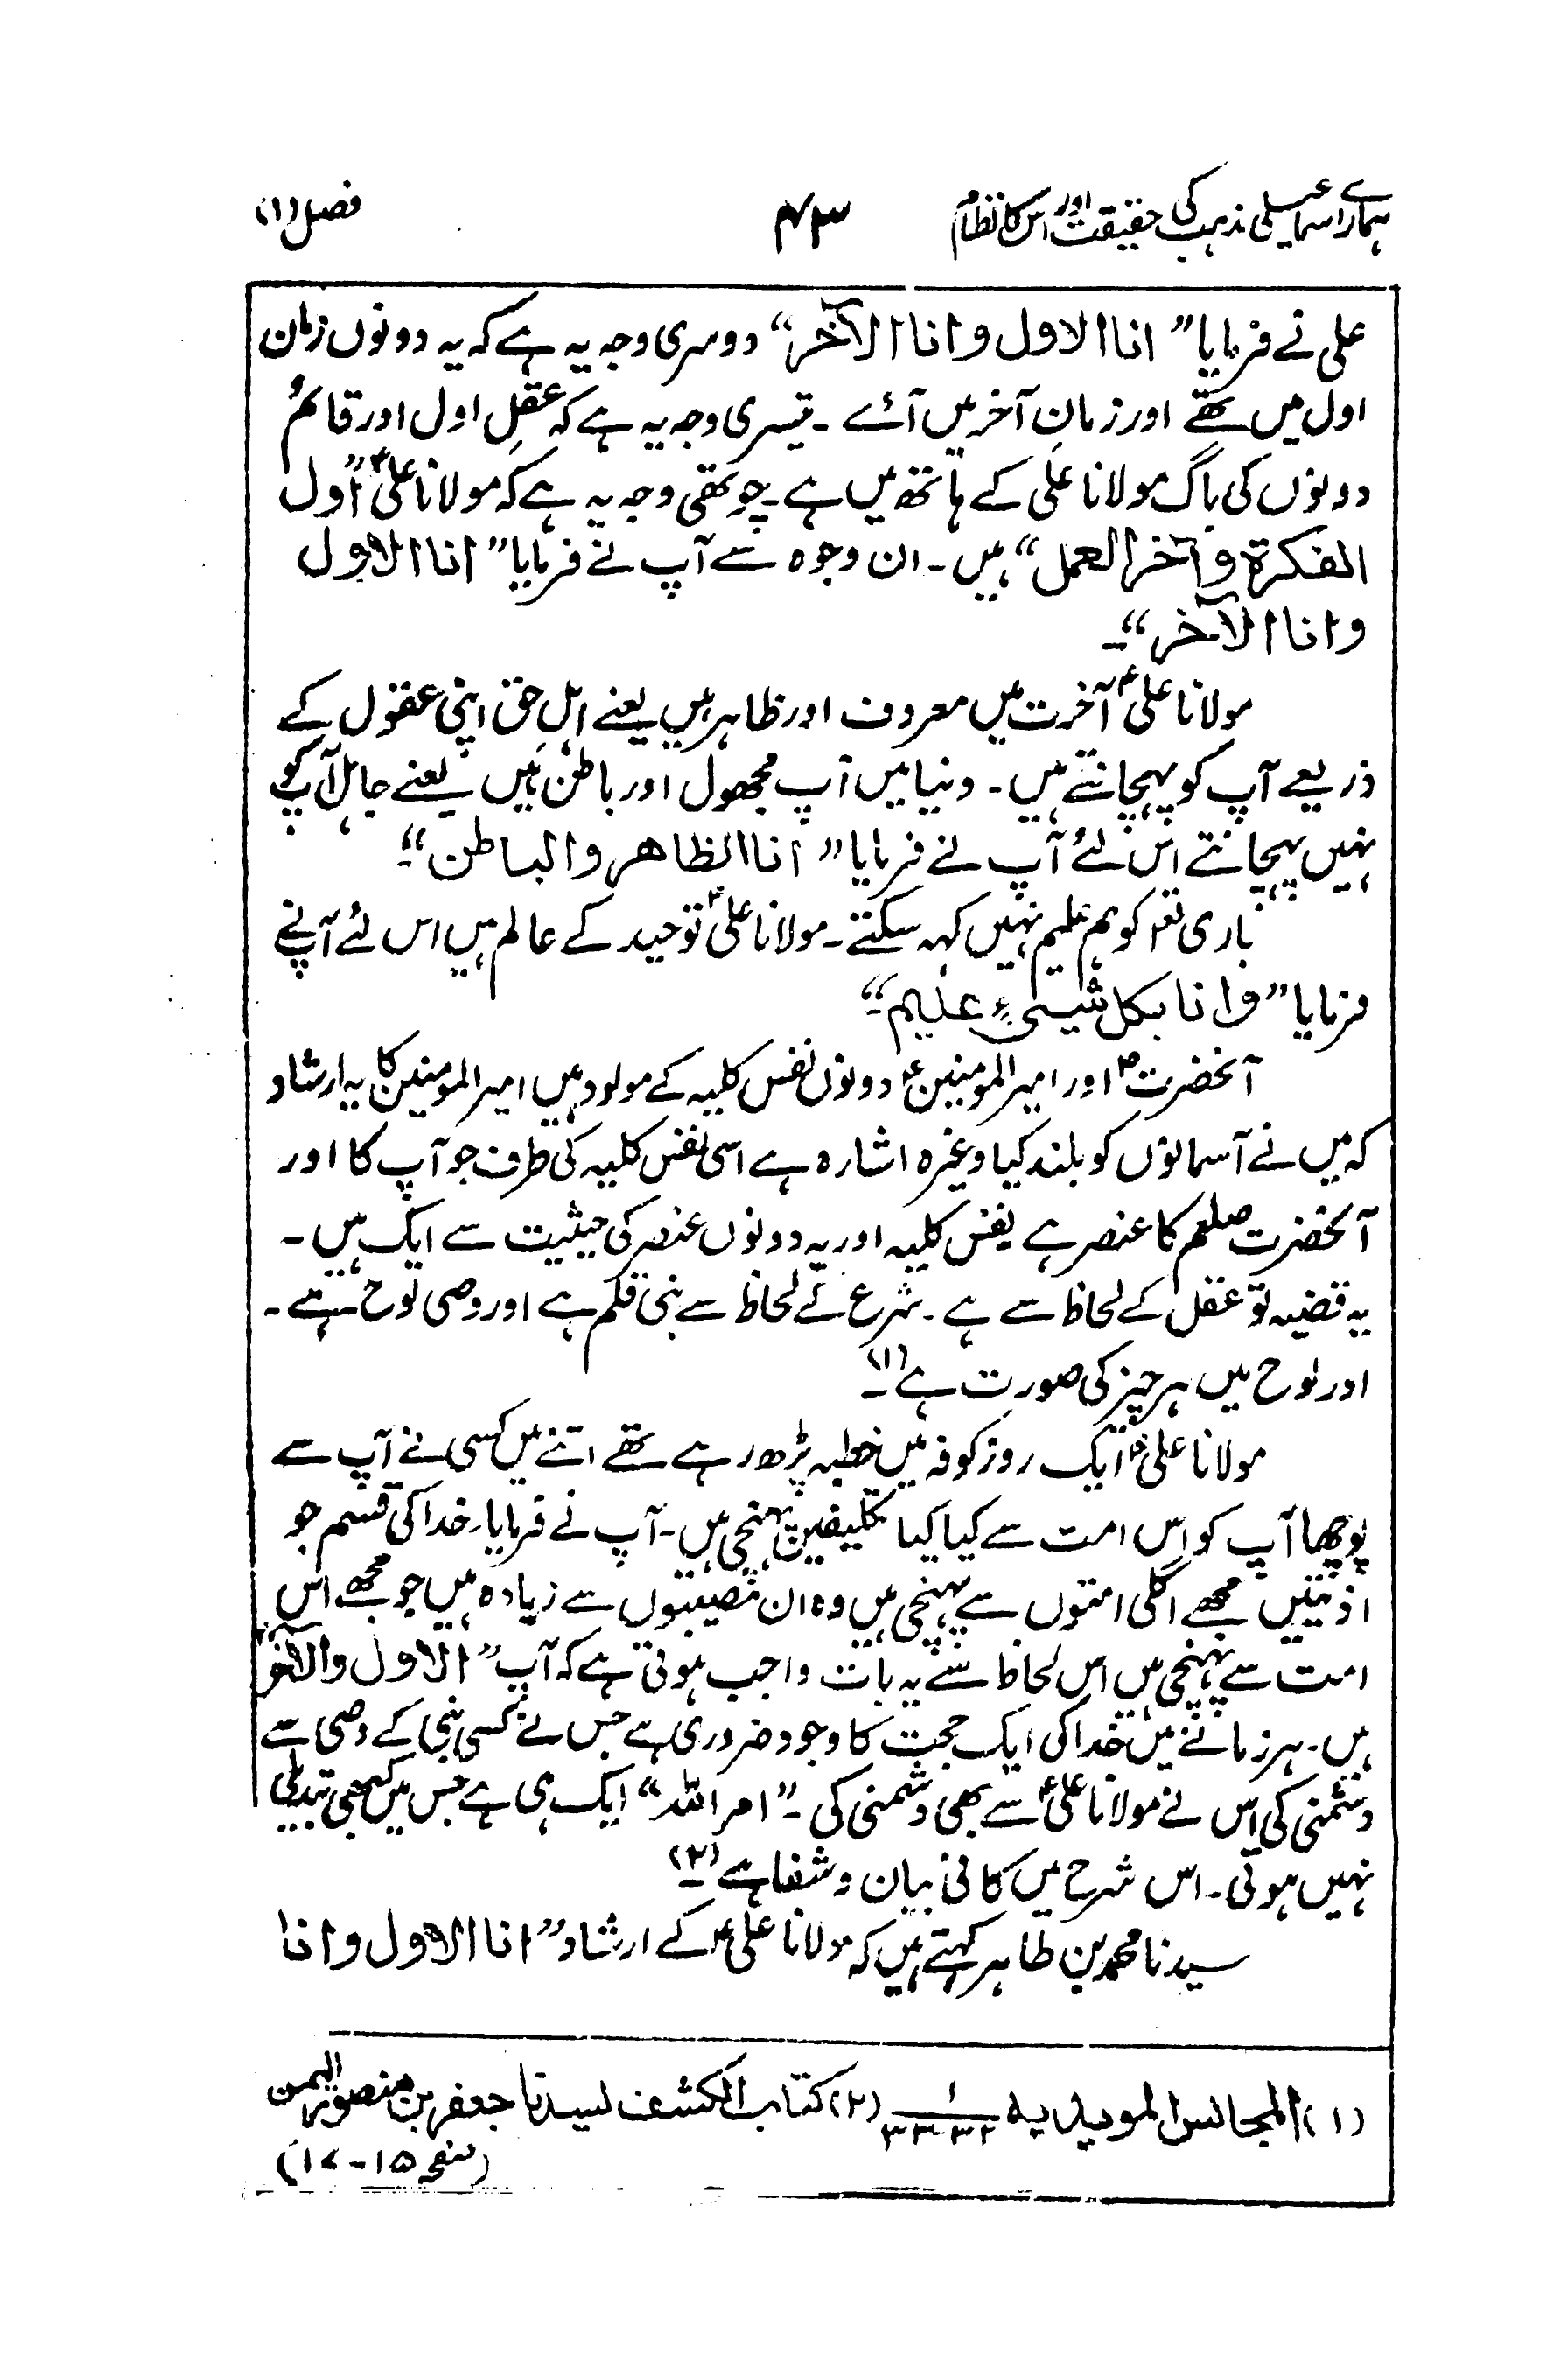 ہمارے اسماعیلی مذہب کی حقیقت اور اس کا نظام ۴۳ فصل (۱)
علی نے فرمایا ”انا الاول وانا الآخر“ دوسری وجہ یہ ہے کہ یہ دونوں زمان
اول میں تھے اور زمانِ آخر میں آئے ۔ تیسری وجہ یہ ہے کہ عقلِ اول اور قائمؑ
دونوں کی باگ مولانا علی کے ہاتھ میں ہے ۔ چوتھی وجہ یہ ہے کہ مولانا علیؑ ”اول
الفکرۃ وآخر العمل“ ہیں ۔ ان وجوہ سے آپ نے فرمایا ”انا الاول
وانا الآخر“۔
مولانا علیؑ آخرت میں معروف اور ظاہر ہیں یعنے اہلِ حق اپنی عقول کے
ذریعے آپ کو پہچانتے ہیں ۔ دنیا میں آپ مجھول اور باطن ہیں یعنے جاہل آپ کو
نہیں پہچانتے اس لئے آپ نے فرمایا ”انا الظاھر والباطن“۔
باری تعٰ کو ہم علیم نہیں کہہ سکتے ۔ مولانا علیؑ توحید کے عالم ہیں اس لئے آپنے
فرمایا ”وانا بکل شیئ علیم“۔
آنحضرتؐ اور امیرالمومنینؑ دونوں نفس کلیہ کے مولود ہیں امیرالمومنین کا یہ ارشاد
کہ میں نے آسمانوں کو بلند کیا وغیرہ اشارہ ہے اسی نفس کلیہ کی طرف جو آپ کا اور
آنحضرت صلعم کا عنصر ہے نفس کلیہ اور یہ دونوں عنصر کی حیثیت سے ایک ہیں ۔
یہ قضیہ تو عقل کے لحاظ سے ہے ۔ شرع کے لحاظ سے نبی قلم ہے اور وصی لوح ہے ۔
اور لوح میں ہر چیز کی صورت ہے (۱)۔
مولانا علیؑ ایک روز کوفہ میں خطبہ پڑھ رہے تھے اتنے میں کسی نے آپ سے
پوچھا آپ کو اس امت سے کیا کیا تکلیفیں پہنچی ہیں ۔ آپ نے فرمایا ۔ خدا کی قسم جو
اذیتیں مجھے اگلی امتوں سے پہنچی ہیں وہ ان مصیبتوں سے زیادہ ہیں جو مجھے اس
امت سے پہنچی ہیں اس لحاظ سے یہ بات واجب ہوتی ہے کہ آپ ”الاول والآخر“
ہیں ۔ ہر زمانے میں خدا کی ایک حجت کا وجود ضروری ہے جس نے کسی نبی کے وصی سے
دشمنی کی اس نے مولانا علیؑ سے بھی دشمنی کی ۔ ”امر اللہ“ ایک ہی ہے جس میں کبھی تبدیلی
نہیں ہوتی ۔ اس شرح میں کافی بیان و شفا ہے (۲)۔
سیدنا محمد بن طاہر کہتے ہیں کہ مولانا علیؑ کے ارشاد ”انا الاول وانا
(۱) المجالس المویدیہ ۱/۳۲-۳۳ (۲) کتاب الکشف لسیدنا جعفر بن منصور الیمن
(صفحہ ۱۵-۱۷)